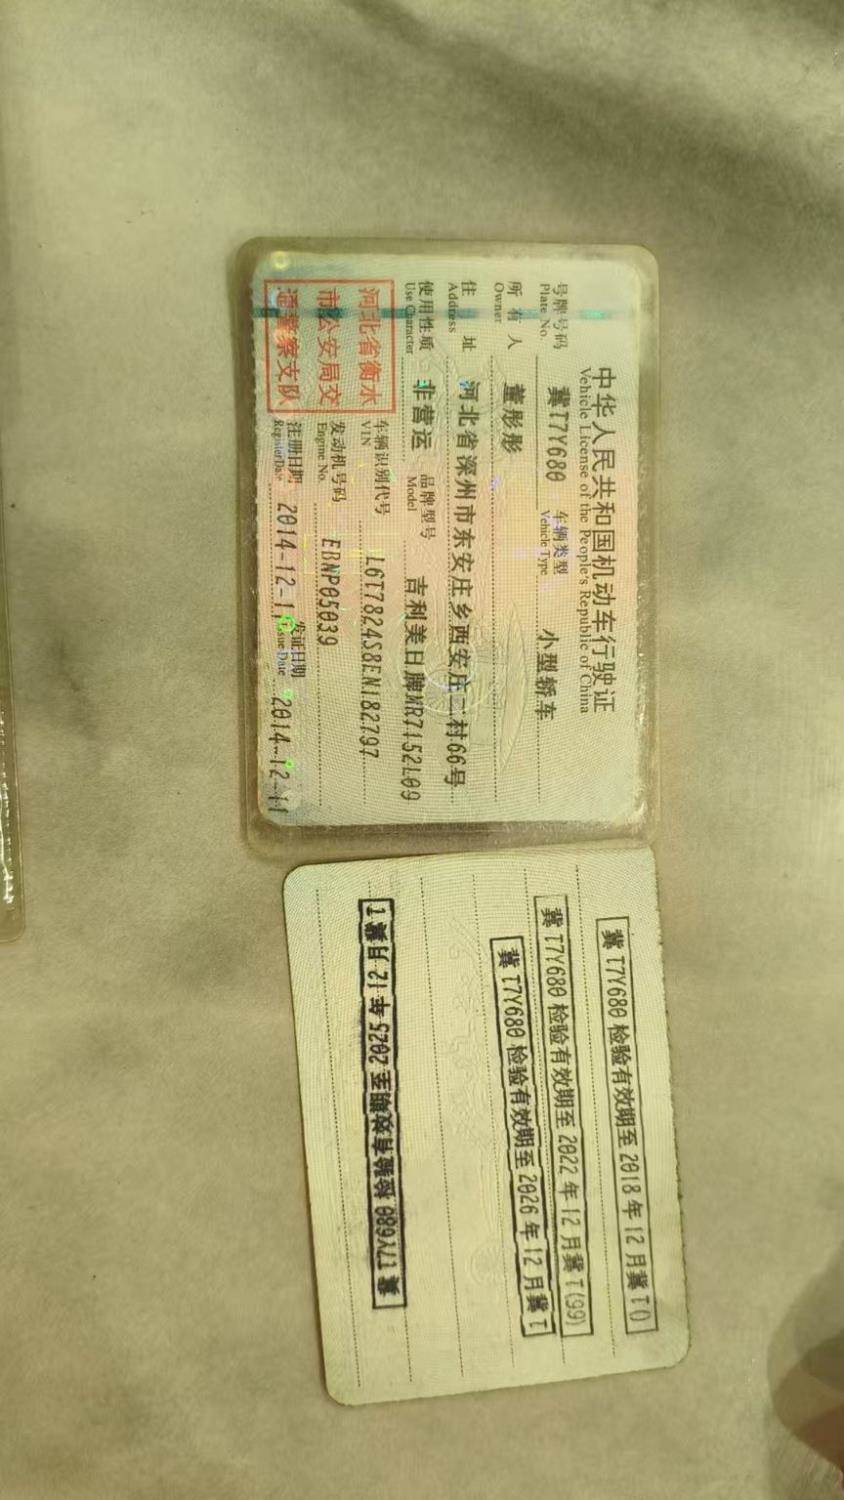 中华人民共和国机动车行驶证
Vehicle License of the People's Republic of China
号牌号码 冀T7Y680 车辆类型 小型轿车
Plate No. Vehicle Type
所有人 董彤彤
Owner
住址 河北省深州市东安庄乡西安庄二村66号
Address
使用性质 非营运 品牌型号 吉利美日牌MR7152L09
Use Character Model
河北省衡水
市公安局交
通警察支队
车辆识别代号 L6T7824S8EN182797
VIN
发动机号码 EBNP05039
Engine No.
注册日期 2014-12-11 发证日期 2014-12-11
Register Date Issue Date
冀T7Y680 检验有效期至 2018 年 12 月冀T()
冀T7Y680 检验有效期至 2022 年 12 月冀T(99)
冀T7Y680 检验有效期至 2026 年 12 月冀T
冀T7Y680 检验有效期至 2025 年 12 月冀T